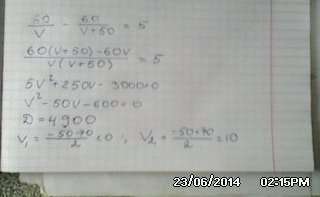 60/V - 60/V+50 = 5
60(V+50)-60V / V(V+50) = 5
5V²+250V-3000=0
V²-50V-600=0
D=4900
V₁=-50-70/2<0; V₂=-50+70/2=10
23/06/2014 02:15PM